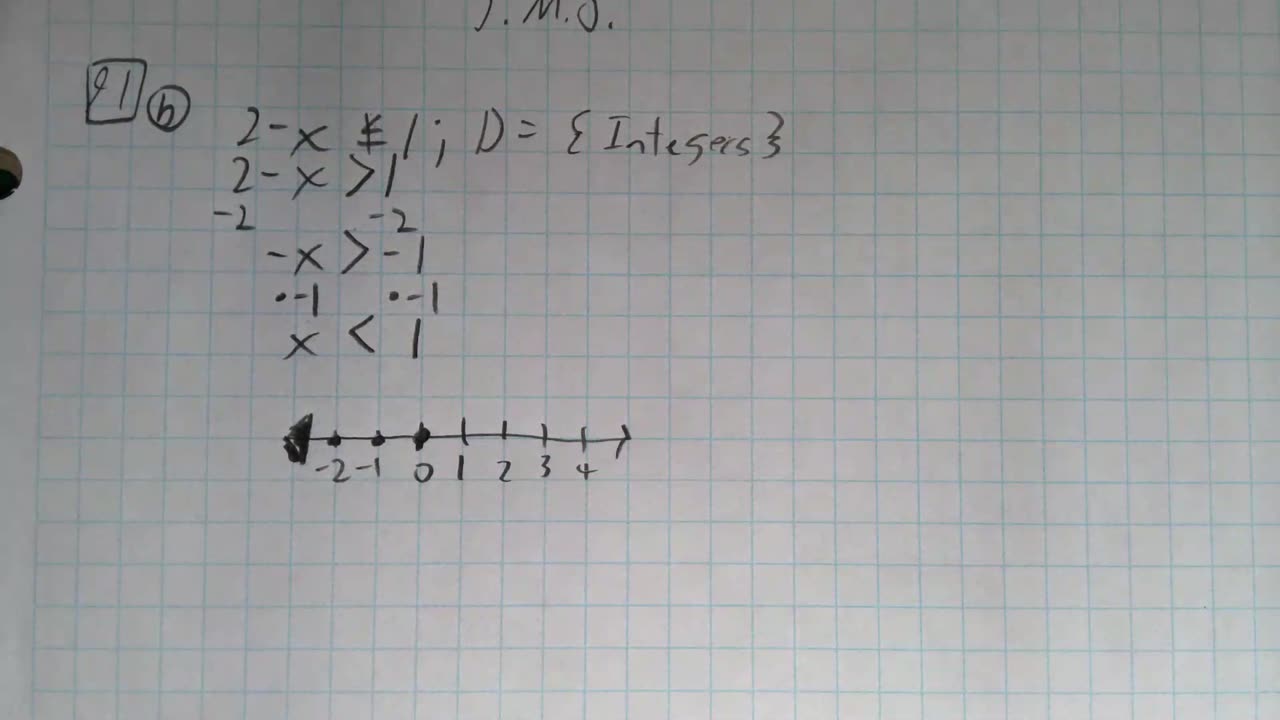 J.M.J.
21 b 2-x ≰ 1; D = {Integers}
2-x > 1
-2 -2
-x > -1
·-1 ·-1
x < 1
-2 -1 0 1 2 3 4